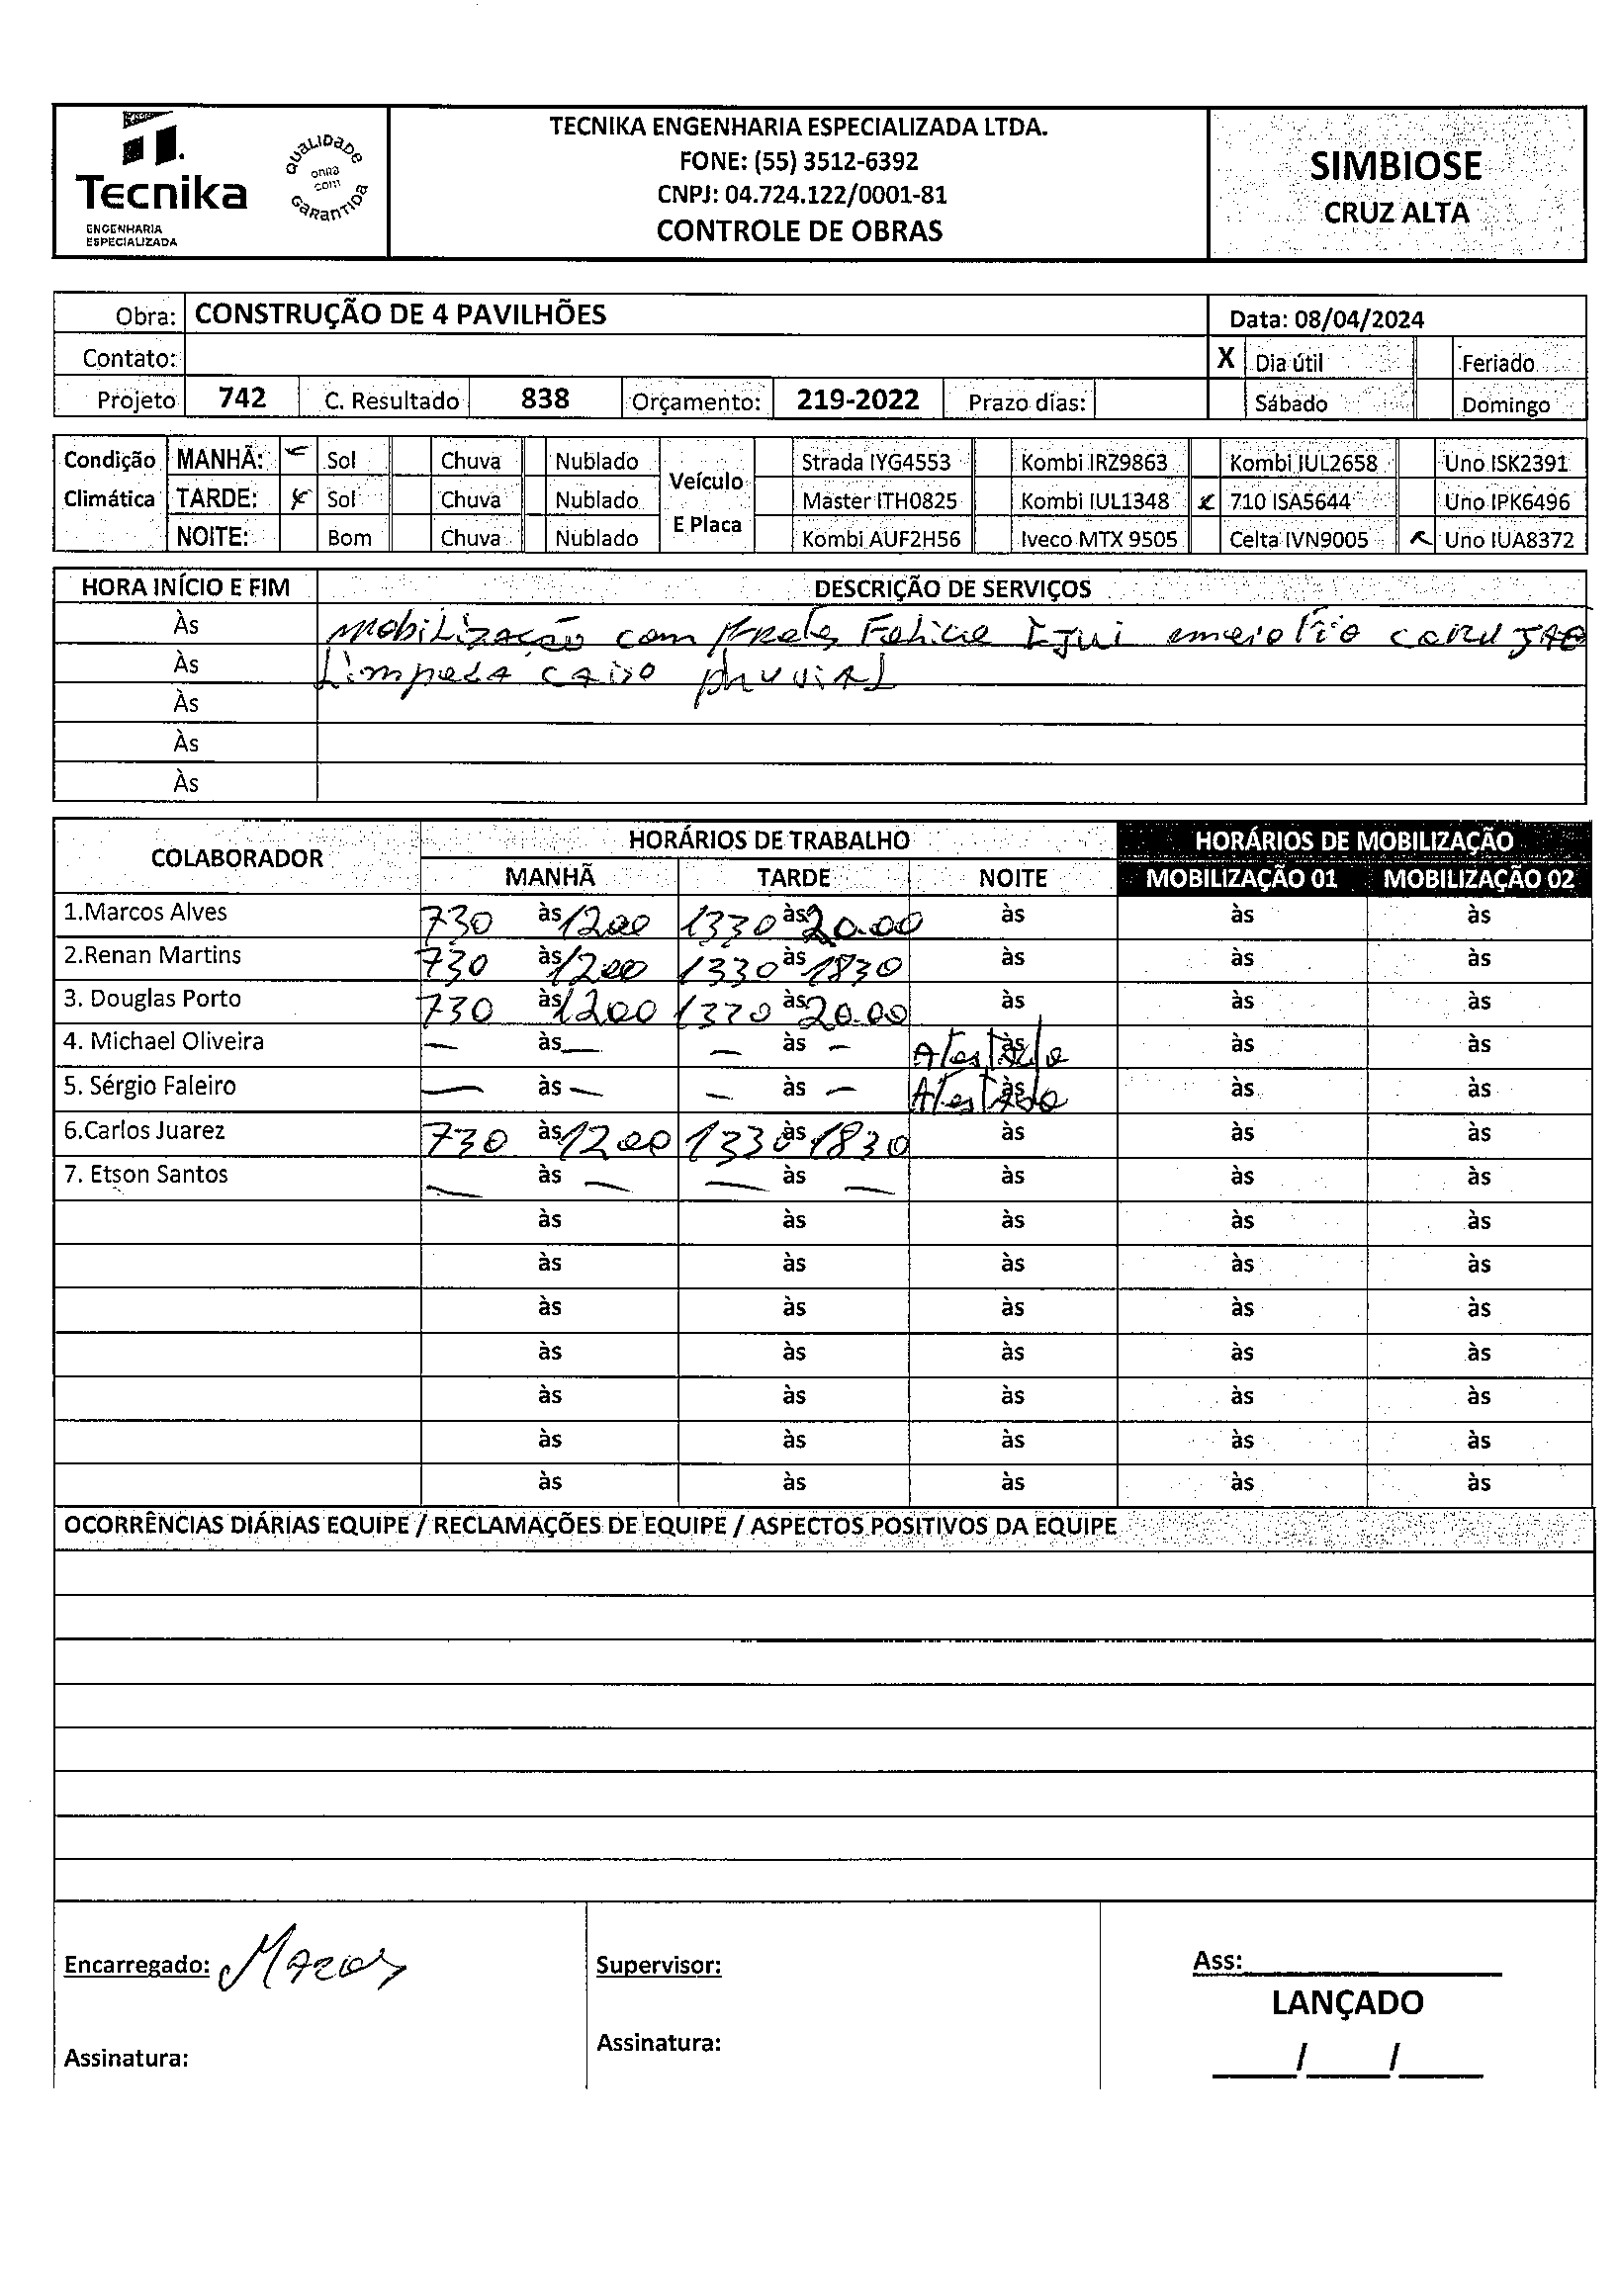 Tecnika
ENGENHARIA
ESPECIALIZADA
QUALIDADE
COM
GARANTIDA
TECNIKA ENGENHARIA ESPECIALIZADA LTDA.
FONE: (55) 3512-6392
CNPJ: 04.724.122/0001-81
CONTROLE DE OBRAS
SIMBIOSE
CRUZ ALTA
Obra: CONSTRUÇÃO DE 4 PAVILHÕES Data: 08/04/2024
Contato: X Dia útil Feriado
Projeto 742 C. Resultado 838 Orçamento: 219-2022 Prazo dias: Sábado Domingo
Condição MANHÃ: Sol Chuva Nublado Veículo Strada IYG4553 Kombi IRZ9863 Kombi IUL2658 Uno ISK2391
Climática TARDE: x Sol Chuva Nublado Master ITH0825 Kombi IUL1348 x 710 ISA5644 Uno IPK6496
NOITE: Bom Chuva Nublado E Placa Kombi AUF2H56 Iveco MTX 9505 Celta IVN9005 x Uno IUA8372
HORA INÍCIO E FIM DESCRIÇÃO DE SERVIÇOS
Às mobilização com
Às Limpesa caixo pluvial
Às
Às
Às
COLABORADOR HORÁRIOS DE TRABALHO HORÁRIOS DE MOBILIZAÇÃO
MANHÃ TARDE NOITE MOBILIZAÇÃO 01 MOBILIZAÇÃO 02
1.Marcos Alves 730 às 1200 1330 às 20.00 às às às
2.Renan Martins 730 às 1200 1330 às 1830 às às às
3. Douglas Porto 730 às 1200 1330 às 20.00 às às às
4. Michael Oliveira — às — — às — Atestado às às às
5. Sérgio Faleiro — às — — às — Atestado às às às
6.Carlos Juarez 730 às 1200 1330 às 1830 às às às
7. Etson Santos — às — — às — às às às
às às às às às
às às às às às
às às às às às
às às às às às
às às às às às
às às às às às
às às às às às
OCORRÊNCIAS DIÁRIAS EQUIPE / RECLAMAÇÕES DE EQUIPE / ASPECTOS POSITIVOS DA EQUIPE
Encarregado: Marcos Supervisor: Ass:
LANÇADO
Assinatura: Assinatura: / /